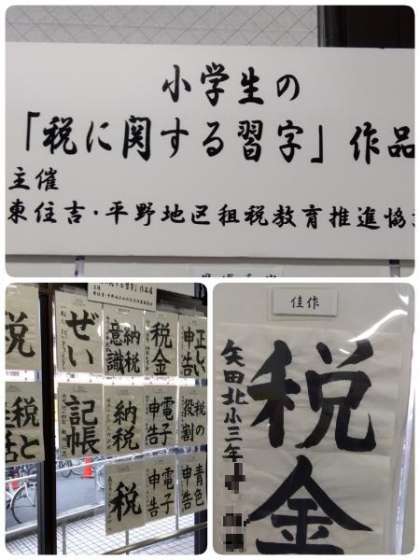 小学生の
「税に関する習字」作品
主催
東住吉・平野地区租税教育推進協
税
ぜい
納税
意識
税金
正しい
申告
税と
生活
記帳
納税
電子
申告
税の
役割
税
電子
申告
青色
申告
佳作
税金
矢田北小三年